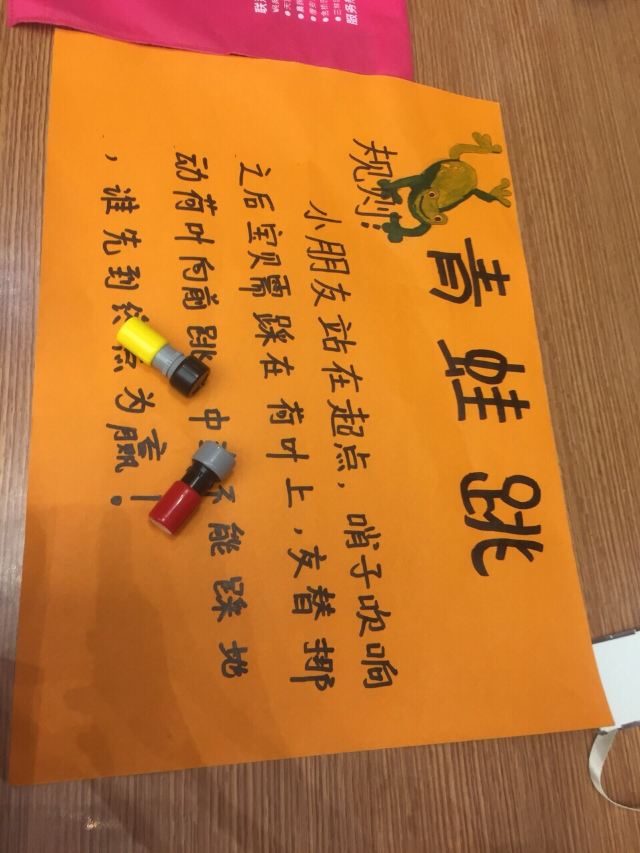 青蛙跳
规则:
小朋友站在起点,哨子吹响
之后宝贝需踩在荷叶上,友替挪
动荷叶向前跳 中 不能踩地
,谁先到终点为赢!
服务